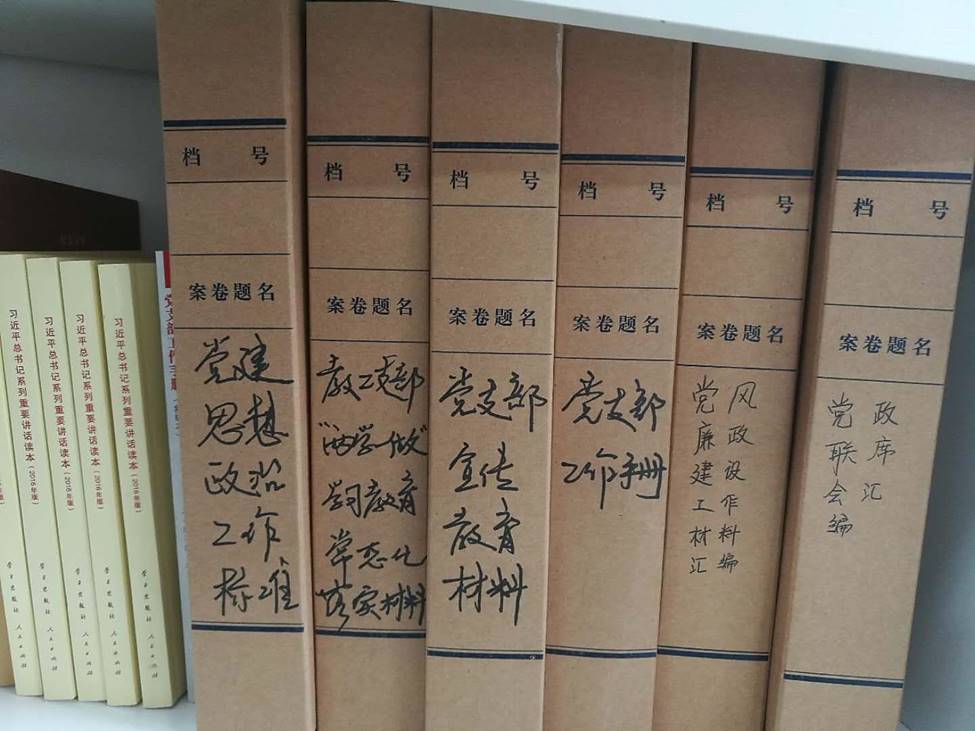 习近平总书记系列重要讲话读本（2016年版）
学习出版社 人民出版社
习近平总书记系列重要讲话读本（2016年版）
学习出版社 人民出版社
习近平总书记系列重要讲话读本（2016年版）
学习出版社 人民出版社
习近平总书记系列重要讲话读本（2016年版）
学习出版社 人民出版社
党支部工作手册
档 号
案卷题名
党建
思想
政治
工作
标准
档 号
案卷题名
教工支部
“两学一做”
学习教育
常态化
材料
档 号
案卷题名
党支部
宣传
教育
材料
档 号
案卷题名
党支部
工作手册
档 号
案卷题名
党风
廉政
建设
工作
材料
汇编
档 号
案卷题名
党政
联席
会汇
编